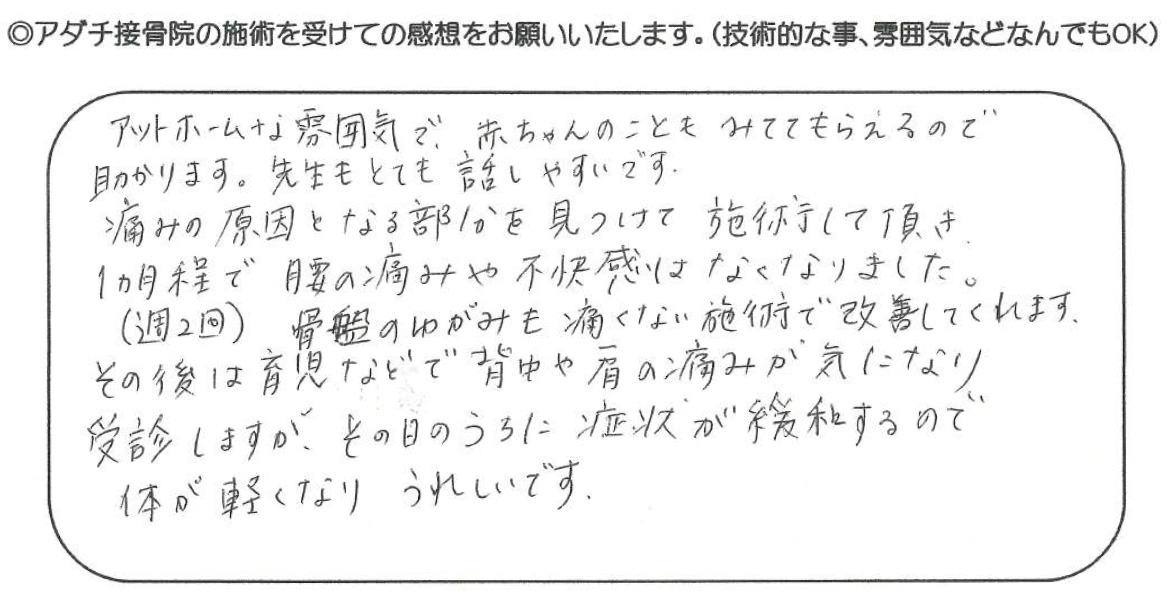 ◎アダチ接骨院の施術を受けての感想をお願いいたします。(技術的な事、雰囲気などなんでもOK)
アットホームな雰囲気で、赤ちゃんのことも みててもらえるので
助かります。先生もとても 話しやすいです。
痛みの 原因となる部分を 見つけて 施術して頂き、
1ヵ月程で 腰の痛みや 不快感は なくなりました。
(週2回) 骨盤のゆがみも 痛くない 施術で 改善してくれます。
その後は 育児などで 背中や 肩の痛みが 気になり
受診しますが、その日のうちに 症状が 緩和するので
体が 軽くなり うれしいです。